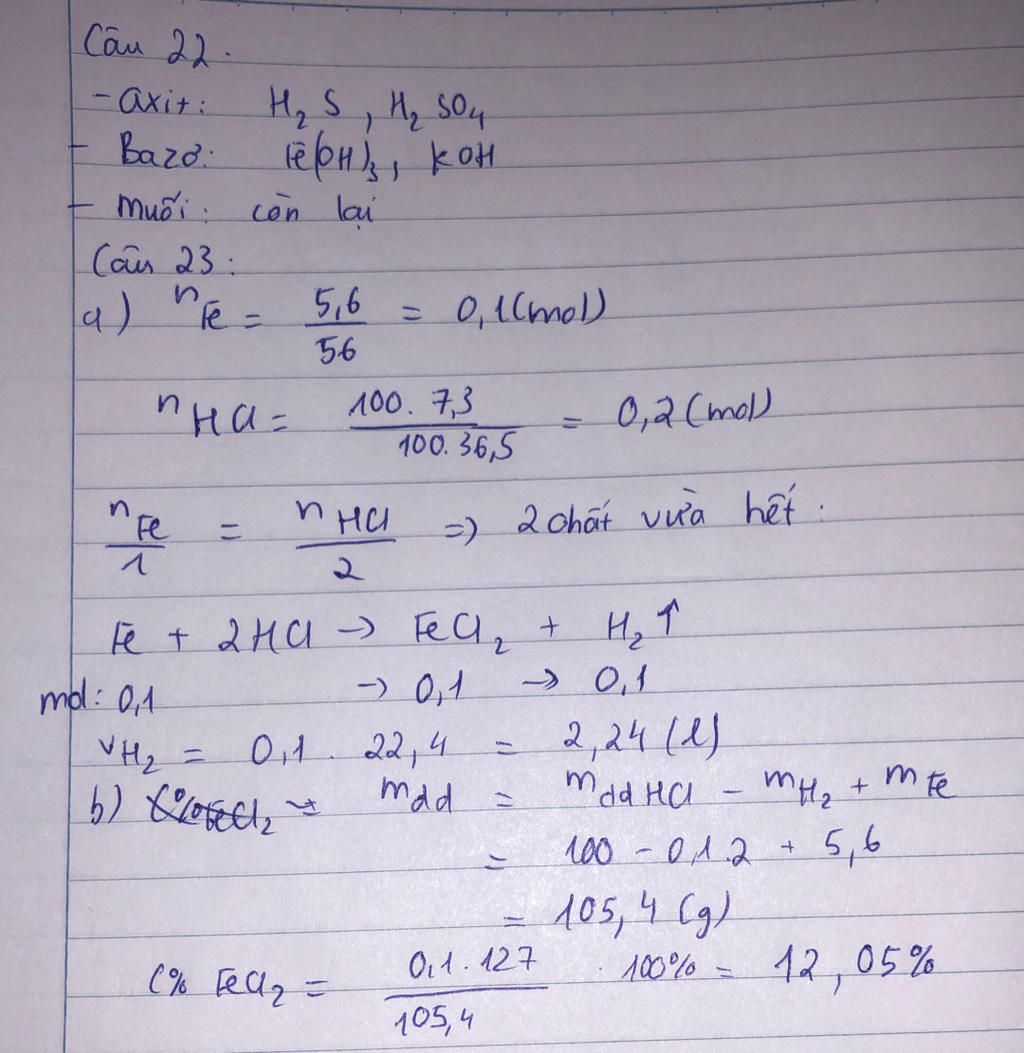 Câu 22.
- axit: H₂S, H₂SO₄
- Bazơ: Fe(OH)₃, KOH
- Muối: còn lại
Câu 23:
a) nFe = 5,6/56 = 0,1(mol)
nHCl = 100.7,3/100.36,5 = 0,2(mol)
nFe/1 = nHCl/2 => 2 chất vừa hết:
Fe + 2HCl → FeCl₂ + H₂↑
mol: 0,1 → 0,1 → 0,1
VH₂ = 0,1 . 22,4 = 2,24 (l)
b) mdd = mddHCl - mH₂ + mFe
= 100 - 0,1.2 + 5,6
= 105,4 (g)
C% FeCl₂ = 0,1.127/105,4 . 100% = 12,05%